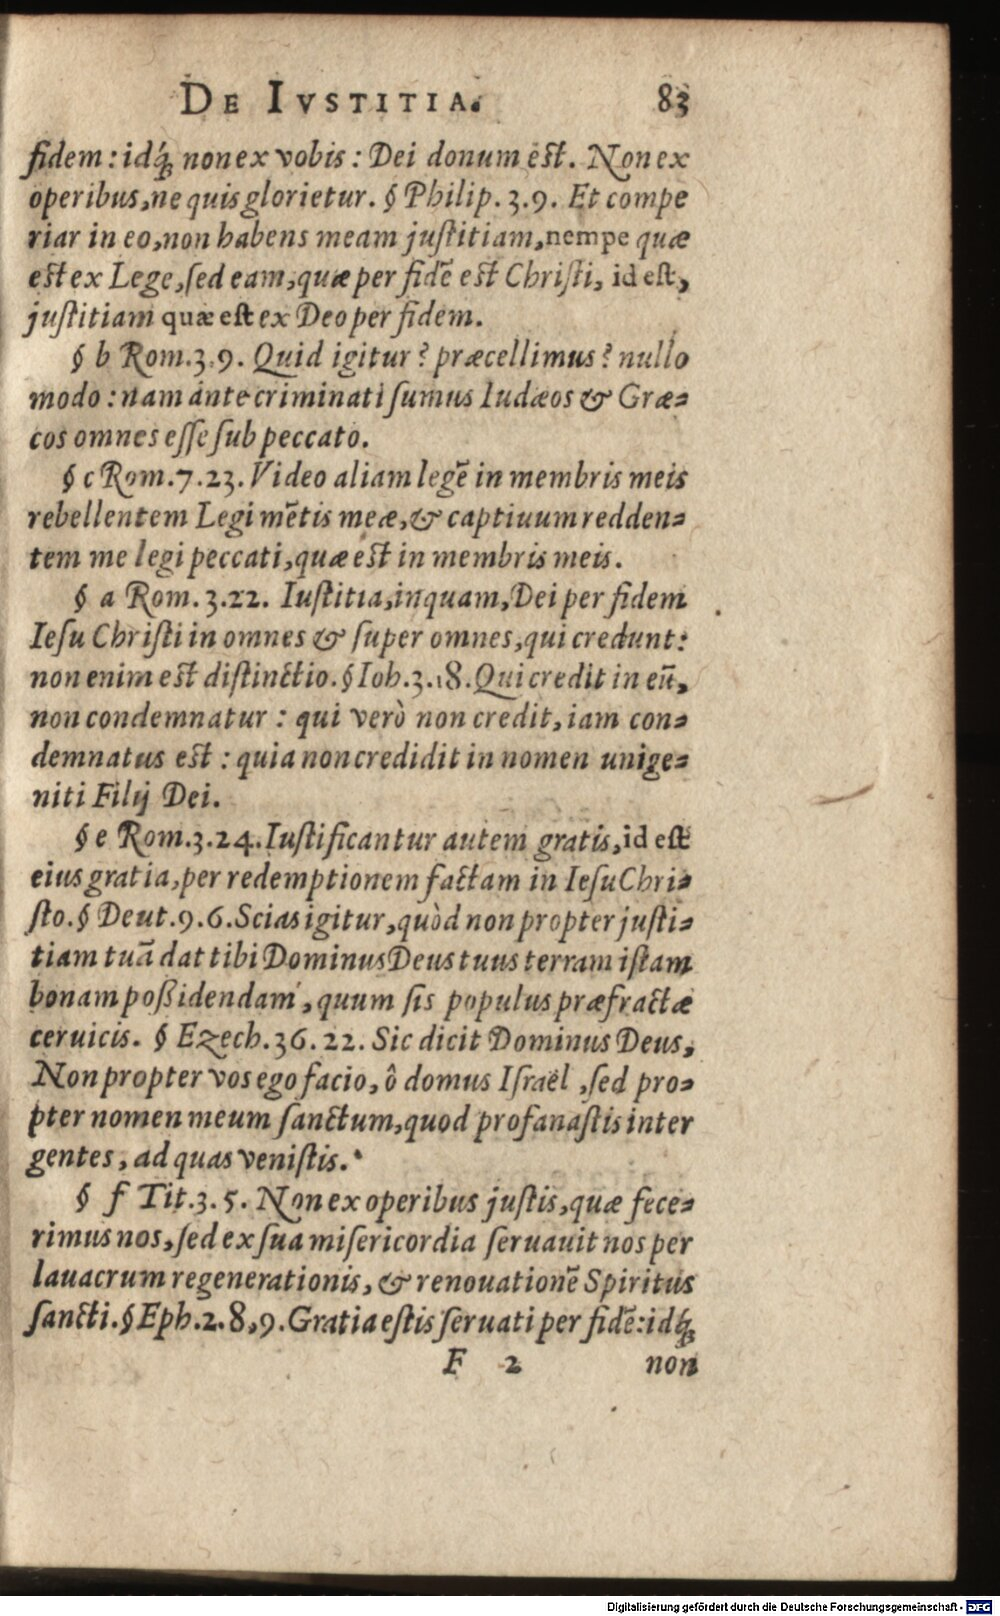 DE IVSTITIA. 83
fidem: idq́; non ex vobis: Dei donum est. Non ex
operibus, ne quis glorietur. § Philip. 3. 9. Et compe
riar in eo, non habens meam justitiam, nempe quæ
est ex Lege, sed eam, quæ per fidē est Christi, id est,
justitiam quæ est ex Deo per fidem.
§ b Rom. 3. 9. Quid igitur? præcellimus? nullo
modo: nam ante criminati sumus Iudæos & Græ-
cos omnes esse sub peccato.
§ c Rom. 7. 23. Video aliam legē in membris meis
rebellentem Legi mētis meæ, & captiuum redden-
tem me legi peccati, quæ est in membris meis.
§ a Rom. 3. 22. Iustitia, inquam, Dei per fidem
Iesu Christi in omnes & super omnes, qui credunt:
non enim est distinctio. § Ioh. 3. 18. Qui credit in eū,
non condemnatur: qui verò non credit, iam con-
demnatus est: quia non credidit in nomen unige-
niti Filij Dei.
§ e Rom. 3. 24. Iustificantur autem gratis, id est
eius gratia, per redemptionem factam in Iesu Chri-
sto. § Deut. 9. 6. Scias igitur, quòd non propter justi-
tiam tuā dat tibi Dominus Deus tuus terram istam
bonam poßidendam, quum sis populus præfractæ
ceruicis. § Ezech. 36. 22. Sic dicit Dominus Deus,
Non propter vos ego facio, ô domus Israël, sed pro-
pter nomen meum sanctum, quod profanastis inter
gentes, ad quas venistis.
§ f Tit. 3. 5. Non ex operibus justis, quæ fece-
rimus nos, sed ex sua misericordia seruauit nos per
lauacrum regenerationis, & renouationē Spiritus
sancti. § Eph. 2. 8, 9. Gratia estis seruati per fidē: idq́;
F 2 non
Digitalisierung gefördert durch die Deutsche Forschungsgemeinschaft - DFG